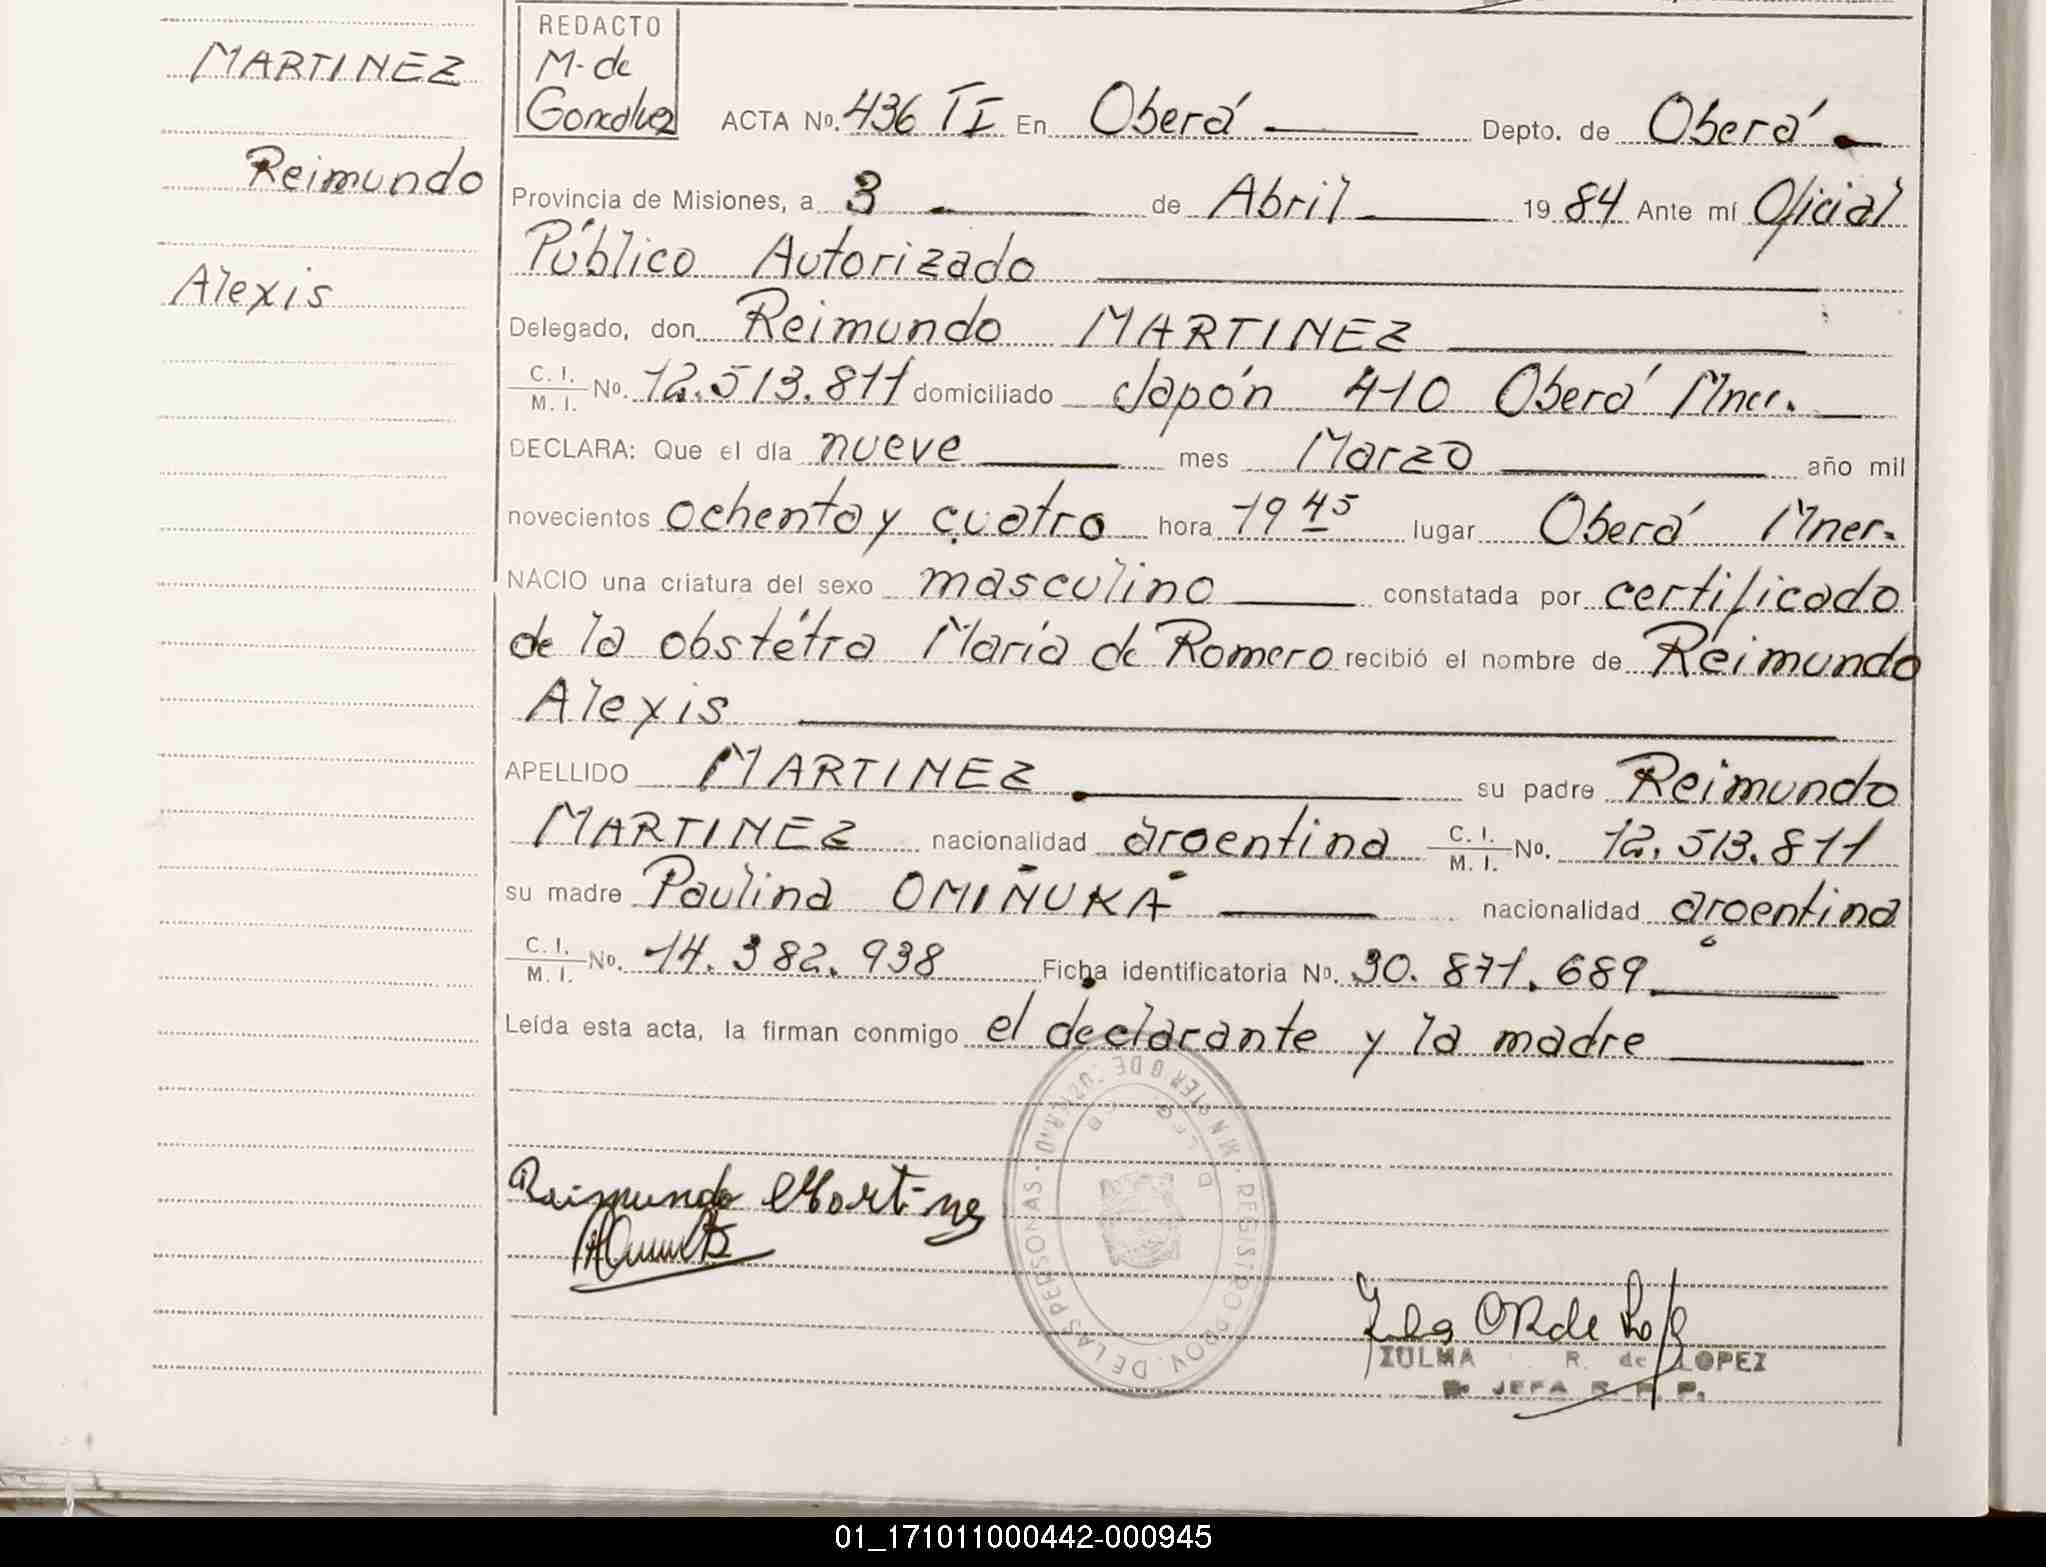 MARTINEZ
Reimundo
Alexis
REDACTO
M. de
Gonzalez
ACTA Nº. 436 TI En Oberá Depto. de Oberá
Provincia de Misiones, a 3 de Abril 1984 Ante mí Oficial
Público Autorizado
Delegado, don Reimundo MARTINEZ
C. I. / M. I. Nº. 12.513.811 domiciliado Japón 410 Oberá Mnes.
DECLARA: Que el día nueve mes Marzo año mil
novecientos ochenta y cuatro hora 19 45 lugar Oberá Mnes.
NACIO una criatura del sexo masculino constatada por certificado
de la obstétra María de Romero recibió el nombre de Reimundo
Alexis
APELLIDO MARTINEZ su padre Reimundo
MARTINEZ nacionalidad argentina C. I. / M. I. Nº. 12.513.811
su madre Paulina OMIÑUKÁ nacionalidad argentina
C. I. / M. I. Nº. 14.382.938 Ficha identificatoria Nº. 30.871.689
Leída esta acta, la firman conmigo el declarante y la madre
REGISTRO PROV. DE LAS PERSONAS
Raimundo Martinez
ZULMA R. de LOPEZ
JEFA R. P. P.
01_171011000442-000945